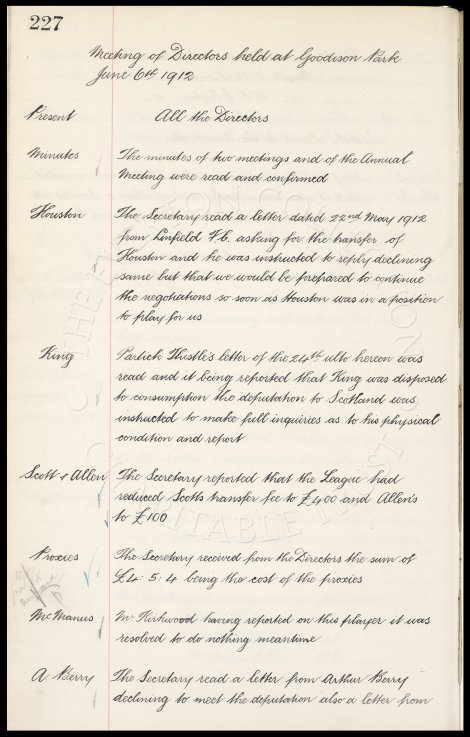 227
Meeting of Directors held at Goodison Park
June 6th 1912
Present All the Directors
Minutes The minutes of two meetings and of the Annual
Meeting were read and confirmed
Houston The Secretary read a letter dated 22nd May 1912
from Linfield F.C. asking for the transfer of
Houston and he was instructed to reply declining
same but that we would be prepared to continue
the negotiations so soon as Houston was in a position
to play for us
King Partick Thistle's letter of the 24th ulto hereon was
read and it being reported that King was disposed
to consumption the deputation to Scotland was
instructed to make full inquiries as to his physical
condition and report
Scott & Allen The Secretary reported that the League had
reduced Scotts transfer fee to £400 and Allen's
to £100
Proxies The Secretary received from the Directors the sum of
£4:5:4 being the cost of the proxies
McManus Mr Kirkwood having reported on this player it was
resolved to do nothing meantime
A Berry The Secretary read a letter from Arthur Berry
declining to meet the deputation also a letter from